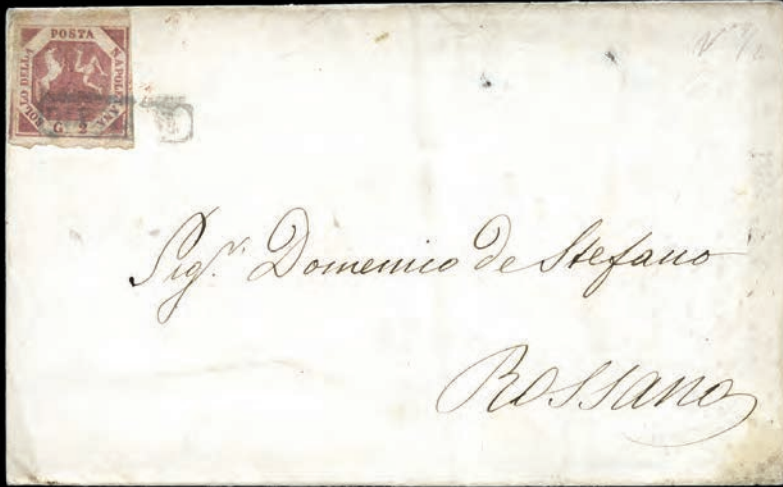 BOLLO DELLA POSTA NAPOLETANA
G. 2
Sig.r Domenico de Stefano
Rossano